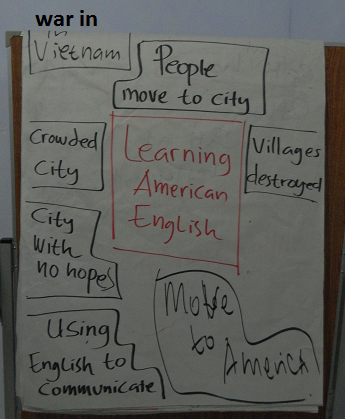 war in
in
Vietnam
People
move to city
Crowded
City
Learning
American
English
Villages
destroyed
City
With
no hopes
Move
to
America
Using
English to
Communicate